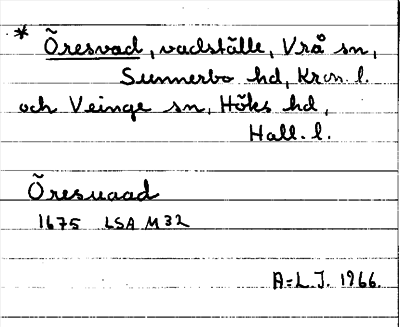 * Õresvad, vadställe, Vrå sn,
Sunnerbo hd, Kron. l.
och Veinge sn, Höks hd,
Hall. l.
Õresuaad
1675 LSA M32
A=L.J. 1966.